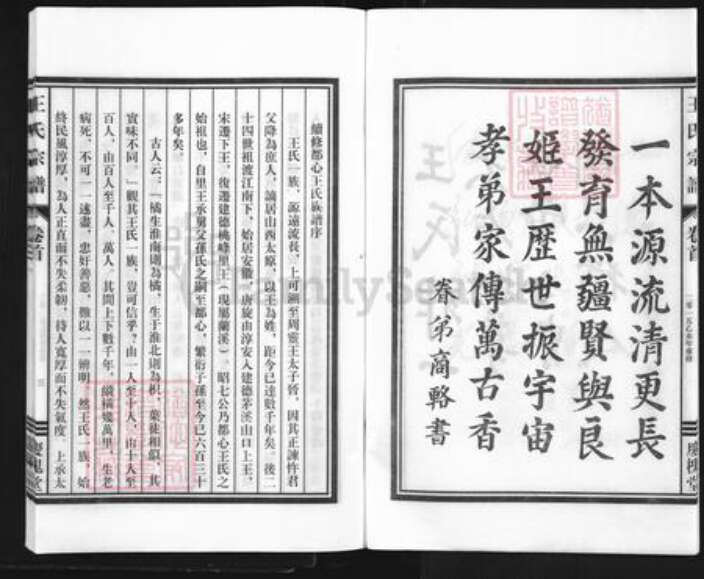 一本源流清更長
發育無疆賢與良
姬王歷世振宇宙
孝弟家傳萬古香
眷弟商輅書
王氏宗譜
卷首
二零一五乙未年重修
慶槐堂
續修都心王氏族譜序
王氏一族，源遠流長，上可溯至周靈王太子晉，因其正諫忤君
父降為庶人，謫居山西太原，以王為姓，距今已達數千年矣。後二
十四世祖渡江南下，始居安徽。唐旋由淳安入建德茅溪山口上王，
宋遷下王，復遷建德桃峰里王（現屬蘭溪）。昭七公乃都心王氏之
始祖也，自里王承舅父孫氏之嗣至都心，繁衍子孫至今已六百三十
多年矣。
古人云：「橘生淮南則為橘，生于淮北則為枳，葉徒相似，其
實味不同。」觀其王氏一族，豈可信乎？由一人至十人，由十人至
百人，由百人至千人、萬人，其間上下數千年，縱橫幾萬里，生老
病死，不可一一述盡，忠奸善惡，難以一一辨明，然王氏一族，始
終民風淳厚，為人正直而不失柔韌，待人寬厚而不失氣度，上承太
王氏宗譜
卷首
慶槐堂
FamilySearch